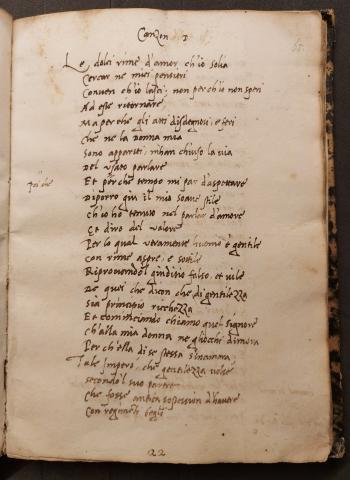 Canzon I
65.
Le dolci rime d'amor ch'io solia
Cercar ne miei pensieri
Conven ch'io lasci; non perch'io non speri
Ad esse ritornare
Ma perche gli atti disdegnosi, e feri
Che ne la donna mia
Sono appariti, mhan chiuso la via
Del usato parlare
poi che
Et perche tempo mi par d'aspettare
Diporro giu il mio soave stile
Ch'io ho tenuto nel parlar d'amore
Et diro del valore
Per lo qual veramente huomo è gentile
Con rime aspre, e sottile
Riprovando'l giuditio falso, et vile
De quei che dicon che di gentilezza
Sia principio ricchezza
Et cominciando chiamo quel signore
Ch'alla mia donna ne gliocchi dimora
Per ch'ella di se stessa s'innamora
Tale imperò, che gentilezza volse
secondo'l suo parere
Che fosse antica possession d'havere
Con reggimenti begli
22